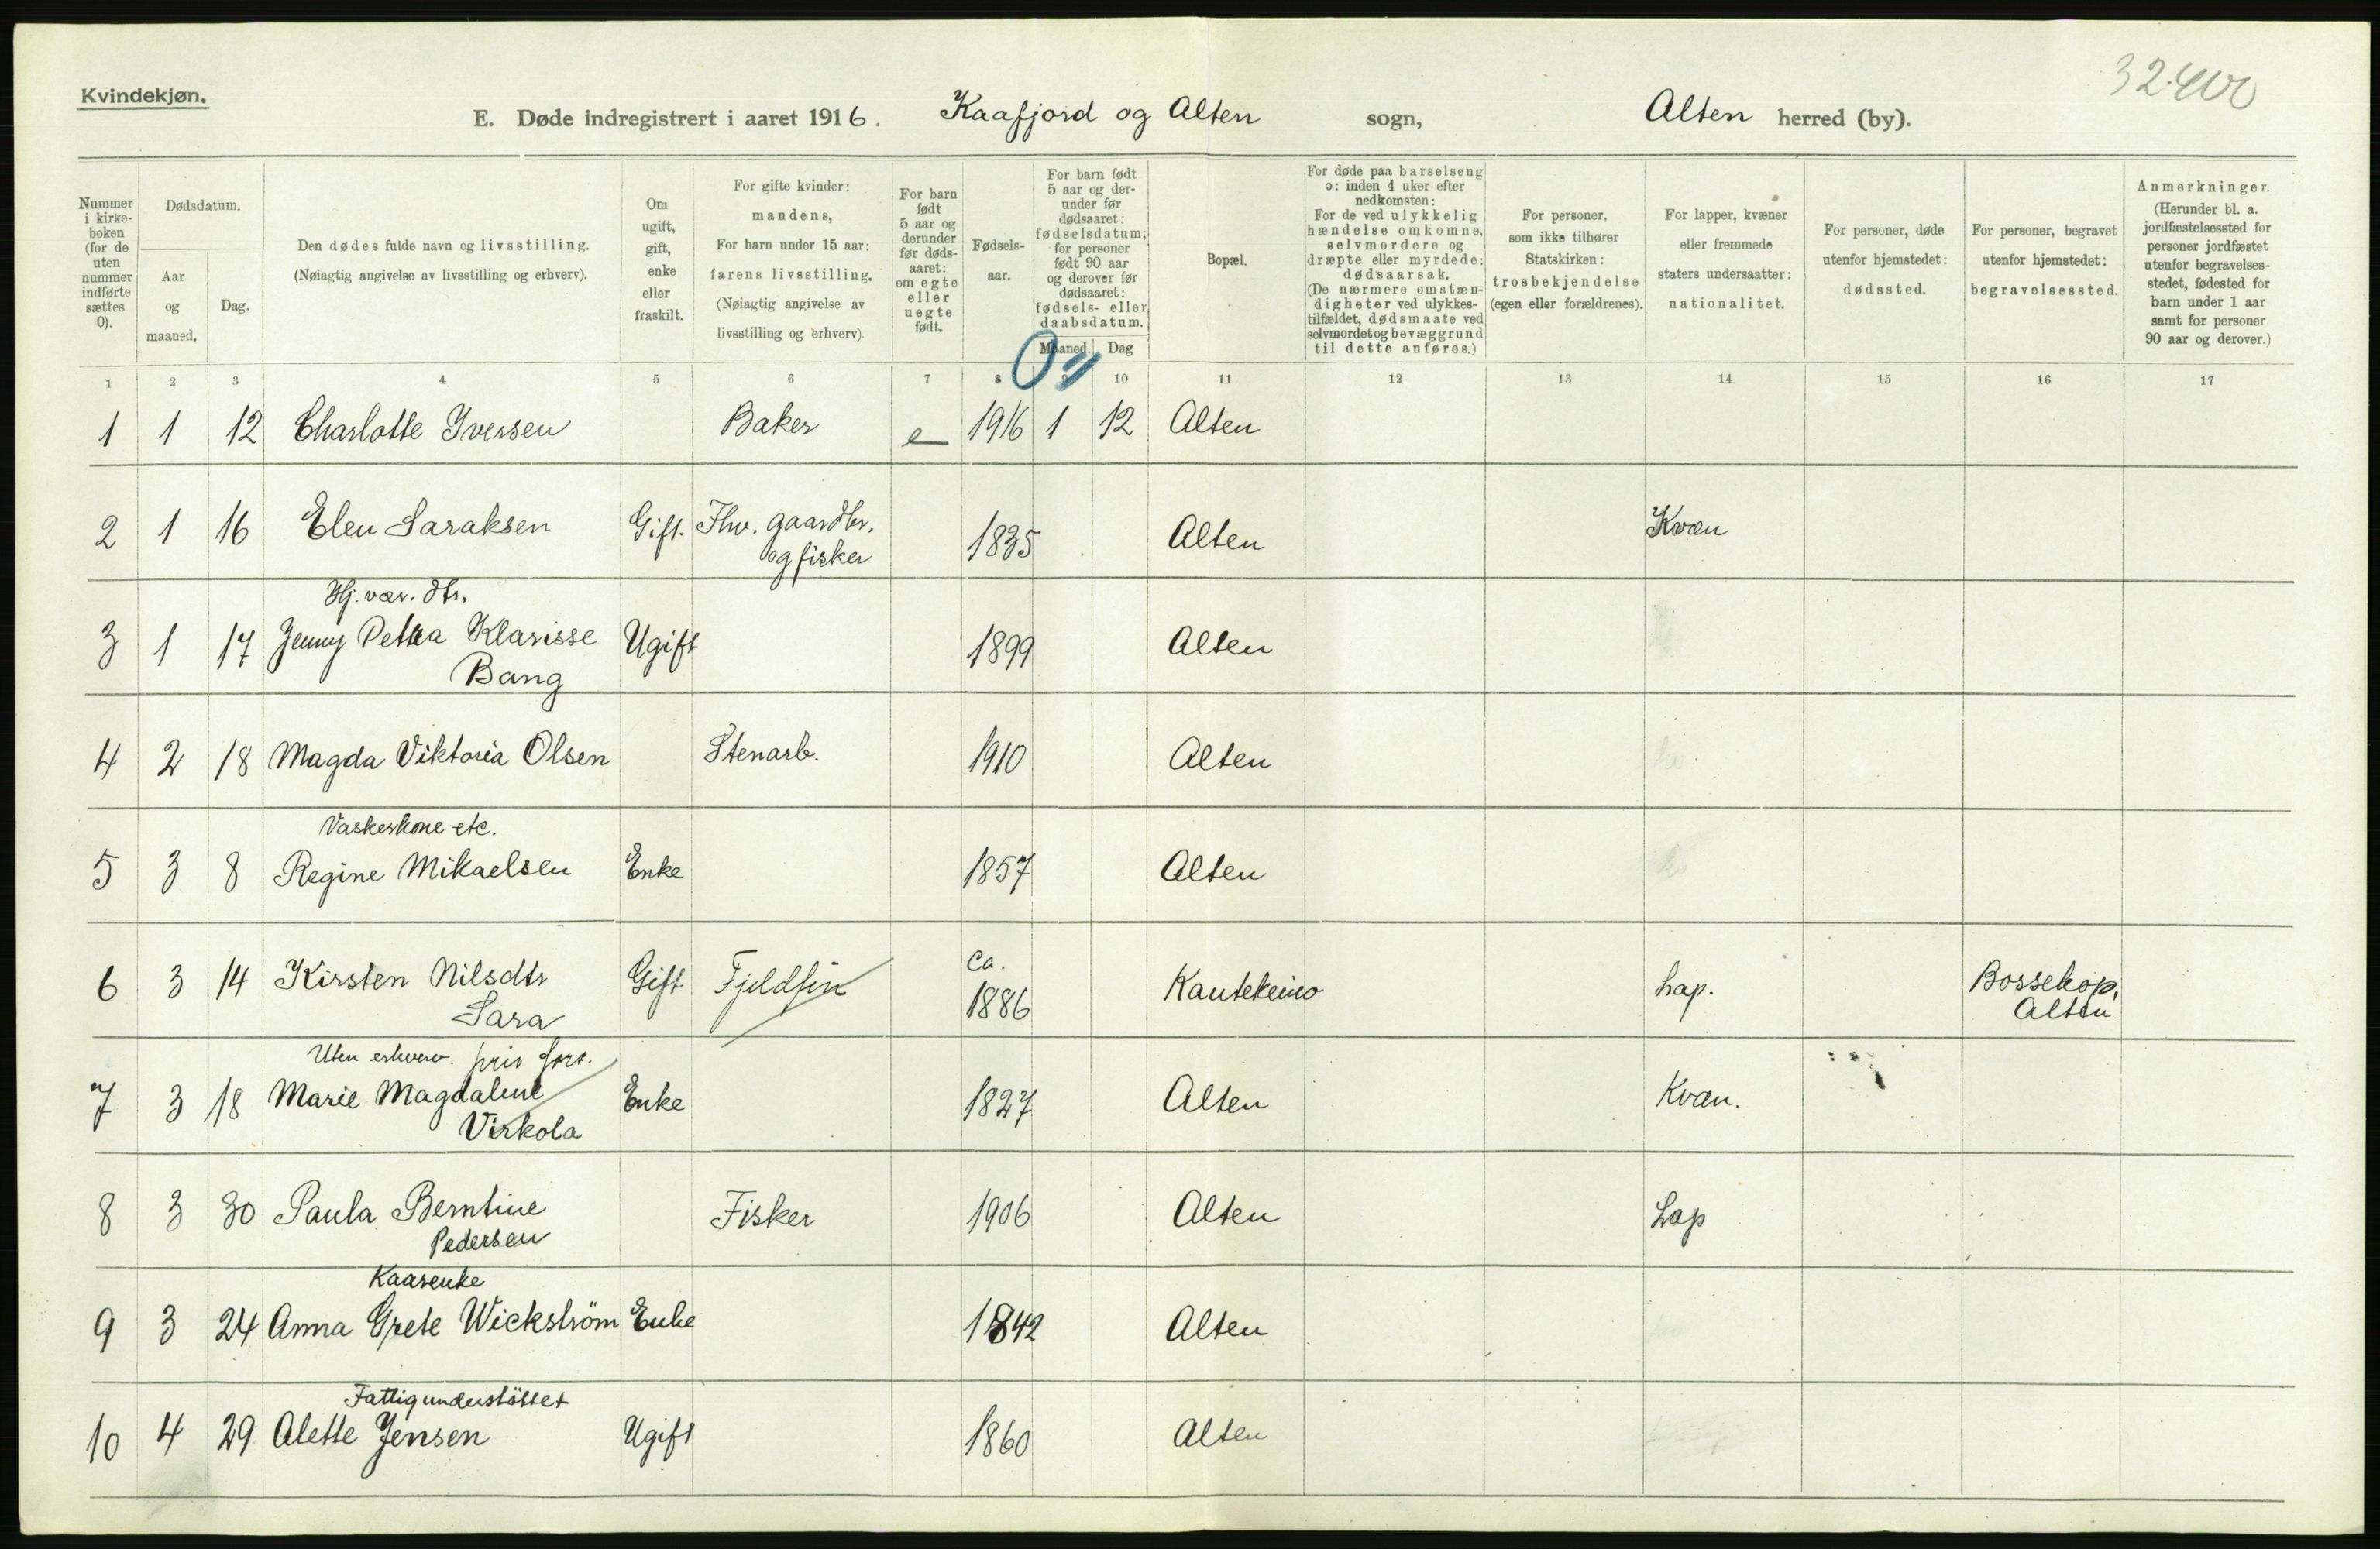 32.400
Kvindekjøn.
E. Døde indregistrert i aaret 1916. Kaafjord og Alten sogn, Alten herred (by).
Nummer i kirke-boken (for de uten nummer indførte sættes 0).
Dødsdatum.
Aar og maaned.
Dag.
Den dødes fulde navn og livsstilling.
(Nøiagtig angivelse av livsstilling og erhverv).
Om ugift, gift, enke eller fraskilt.
For gifte kvinder: mandens,
For barn under 15 aar: farens livsstilling.
(Nøiagtig angivelse av livsstilling og erhverv).
For barn født 5 aar og derunder før døds-aaret: om egte eller uegte født.
Fødsels-aar.
For barn født 5 aar og der-under før dødsaaret: fødselsdatum; for personer født 90 aar og derover før dødsaaret: fødsels- eller daabsdatum.
Maaned. Dag
Bopæl.
For døde paa barselseng ɔ: inden 4 uker efter nedkomsten:
For de ved ulykkelig hændelse omkomne, selvmordere og dræpte eller myrdede: dødsaarsak.
(De nærmere omstæn-digheter ved ulykkes-tilfældet, dødsmaate ved selvmordet og bevæggrund til dette anføres.)
For personer, som ikke tilhører Statskirken: trosbekjendelse (egen eller forældrenes).
For lapper, kvæner eller fremmede staters undersaatter: nationalitet.
For personer, døde utenfor hjemstedet: dødssted.
For personer, begravet utenfor hjemstedet: begravelsessted.
Anmerkninger.
(Herunder bl. a. jordfæstelsessted for personer jordfæstet utenfor begravelses-stedet, fødested for barn under 1 aar samt for personer 90 aar og derover.)
1 2 3 4 5 6 7 8 9 10 11 12 13 14 15 16 17
1 1 12 Charlotte Iversen Baker e 1916 1 12 Alten
2 1 16 Elen Saraksen Gift. Fhv. gaardbr. 1835 Alten Kvæn
og fisker
Hj. vær. dtr.
3 1 17 Jenny Petra Klarisse Ugift 1899 Alten
Bang
4 2 18 Magda Viktoria Olsen Stenarb. 1910 Alten
Vaskerkone etc.
5 3 8 Regine Mikaelsen Enke 1857 Alten
6 3 14 Kirsten Nilsdtr Gift Fjeldfin ca. 1886 Kautekeino Lap. Bossekop,
Sara Alten.
Uten erhverv. priv fort.
7 3 18 Marie Magdalene Enke 1827 Alten Kvæn.
Virkola
8 3 30 Paula Berntine Fisker 1906 Alten Lap
Pedersen
Kaarenke
9 3 24 Anna Grete Wickström Enke 1842 Alten
Fattigunderstöttet
10 4 29 Alette Jensen Ugift 1860 Alten